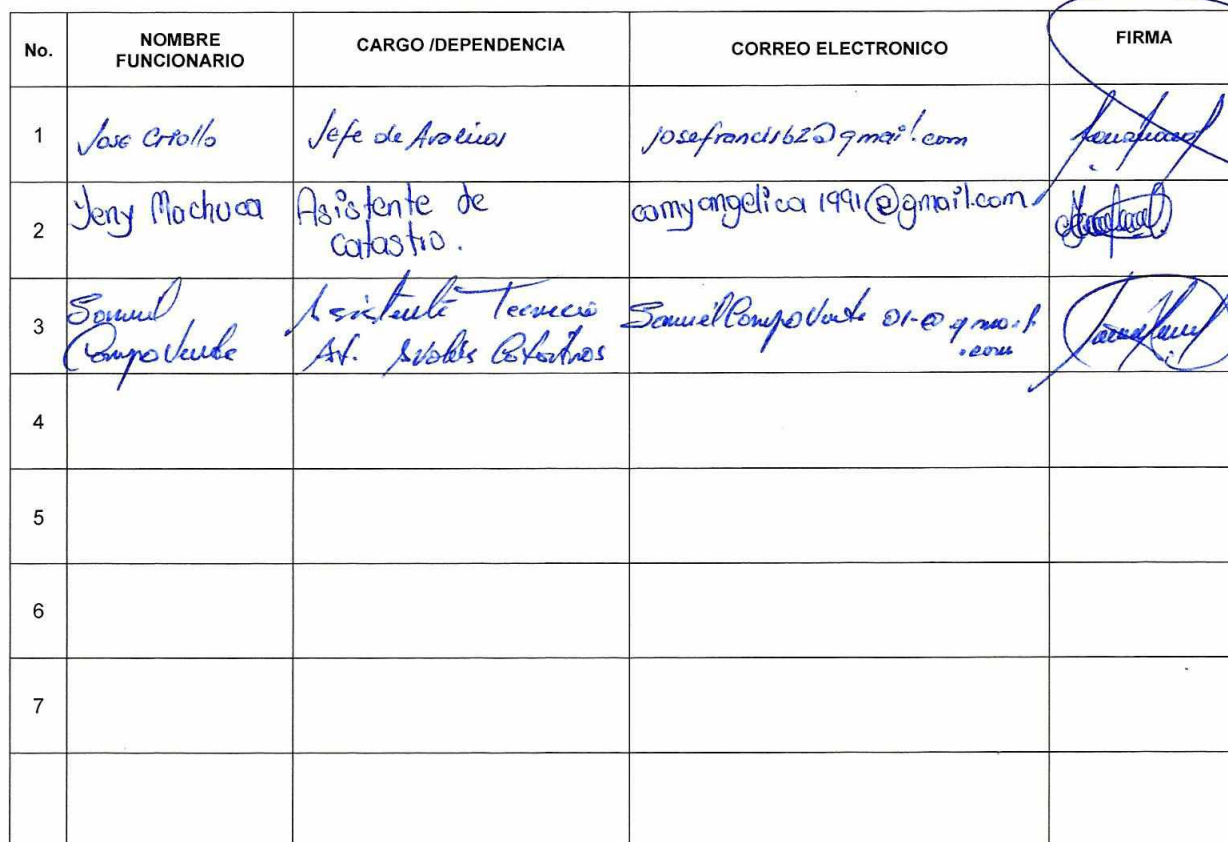 No.
NOMBRE
FUNCIONARIO
CARGO /DEPENDENCIA
CORREO ELECTRONICO
FIRMA
1
Jose Criollo
Jefe de Avaluos
josefrancis62@gmail.com
2
Yeny Machuca
Asistente de
catastro.
camyangelica1991@gmail.com
3
Samuel
Campoverde
Asistente Tecnico
Av.
SamuelCampoverde 01-@gmail
.com
4
5
6
7